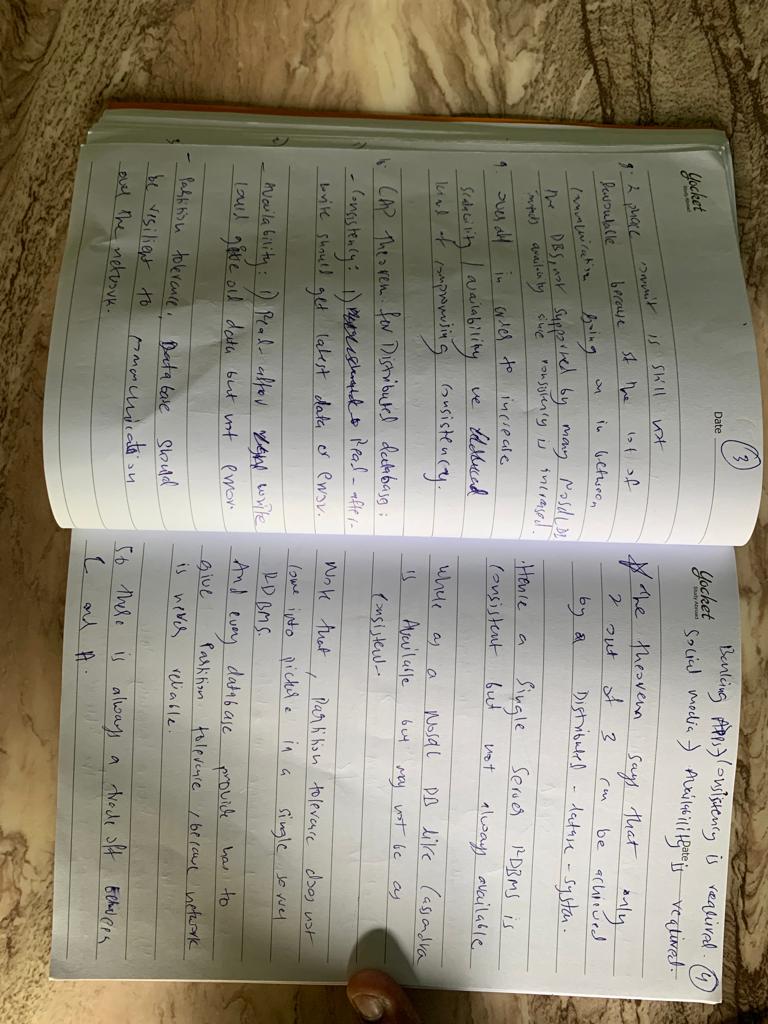 3
Date
Yocket
Study Abroad
8. 2 phase commit is still not
favourable because of the lot of
communication going on in between
the DBS, not supported by many NoSQL DB
impacts availability since consistency is increased.
9. Overall in order to increase
scalability / availability we
kind of compromising consistency.
CAP theorem for Distributed database:
- Consistency: 1) Read-after-
write should get latest data or error.
- Availability: 1) Read-after write
could give old data but not error.
- Partition tolerance: Database should
be resilient to communication
over the network.
Banking Apps → Consistency is required.
4
Yocket
Study Abroad
Social media → Availability is required.
Date
The theorem says that only
2 out of 3 can be achieved
by a Distributed - databse - system.
Hence a single server RDBMS is
consistent but not always available
where as a NoSQL DB like Cassandra
is Available but may not be as
consistent
Note that, Partition tolerance does not
come into picture in a single server
RDBMS.
And every database provide has to
give Partition tolerance, because network
is never reliable.
So there is always a trade off between
C and A.